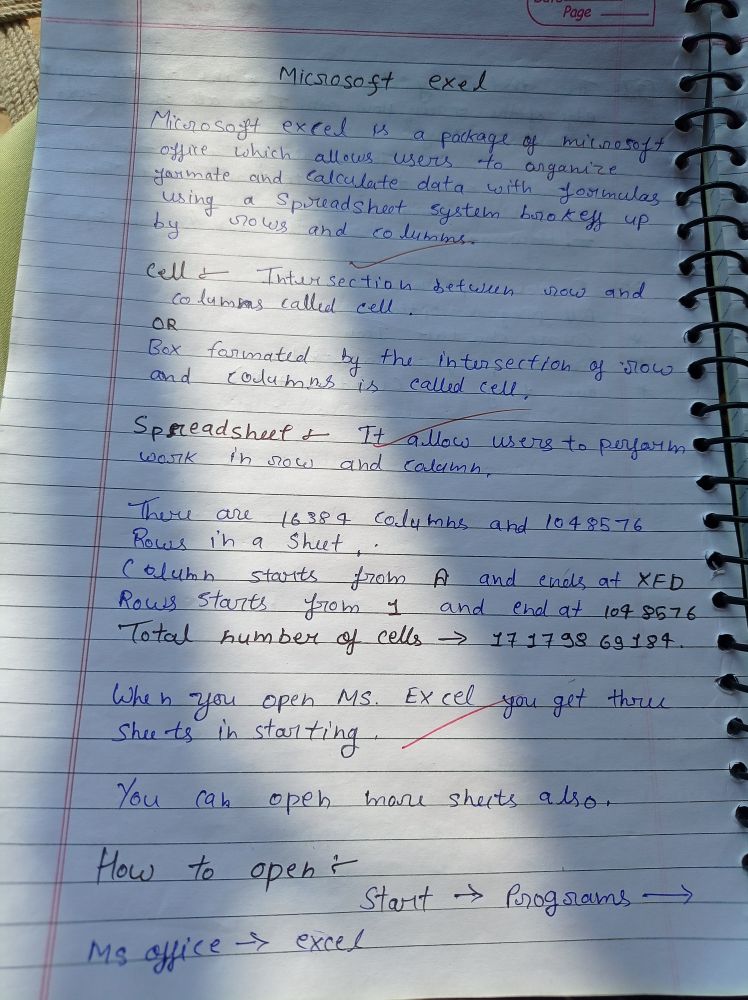 Page
Microsoft exel
Microsoft excel is a package of microsoft
office which allows users to organize
farmate and calculate data with formulas
using a spreadsheet system up
by rows and columns.
Cell :- Intersection between row and
columns called cell.
OR
Box formated by the intersection of row
and columns is called cell.
Spreadsheet :- It allow users to perform
work in row and calamn.
There are 16384 columns and 1048576
Rows in a Sheet.
Column starts from A and ends at XFD
Rows starts from 1 and end at 1048576
Total number of cells → 17179869184.
When you open MS. Excel you get three
sheets in starting.
You can open more sheets also.
How to open :-
Start → Programs →
Ms office → excel